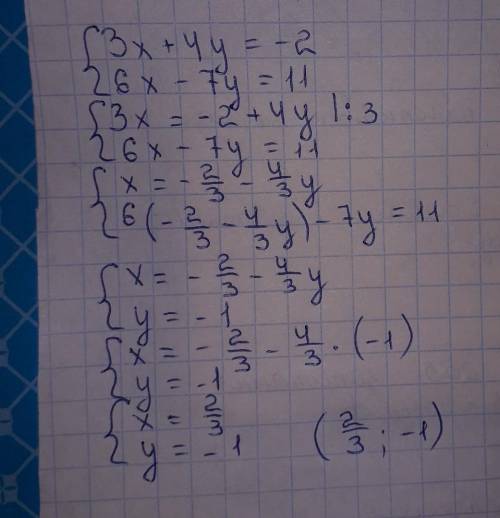 {3x + 4y = -2
{6x - 7y = 11
{3x = -2 + 4y |: 3
{6x - 7y = 11
{x = - 2/3 - 4/3 y
{6(- 2/3 - 4/3 y) - 7y = 11
{x = - 2/3 - 4/3 y
{y = - 1
{x = - 2/3 - 4/3 · (-1)
{y = -1
{x = 2/3
{y = - 1 (2/3 ; -1)